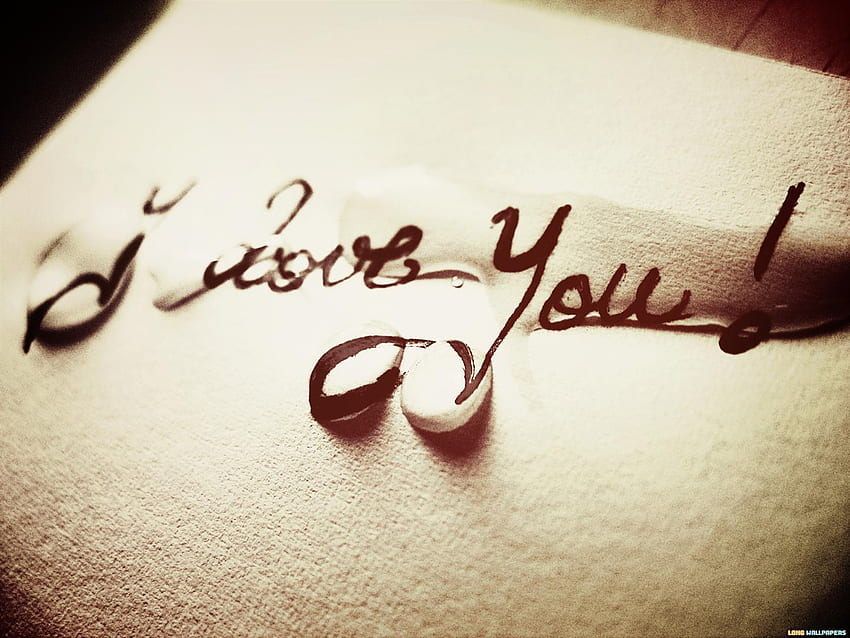 I Love You!
LONG WALLPAPERS